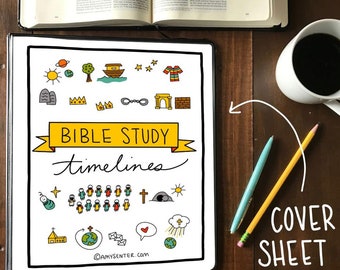 BIBLE STUDY
timelines
©AMYSENTER.com
COVER
SHEET